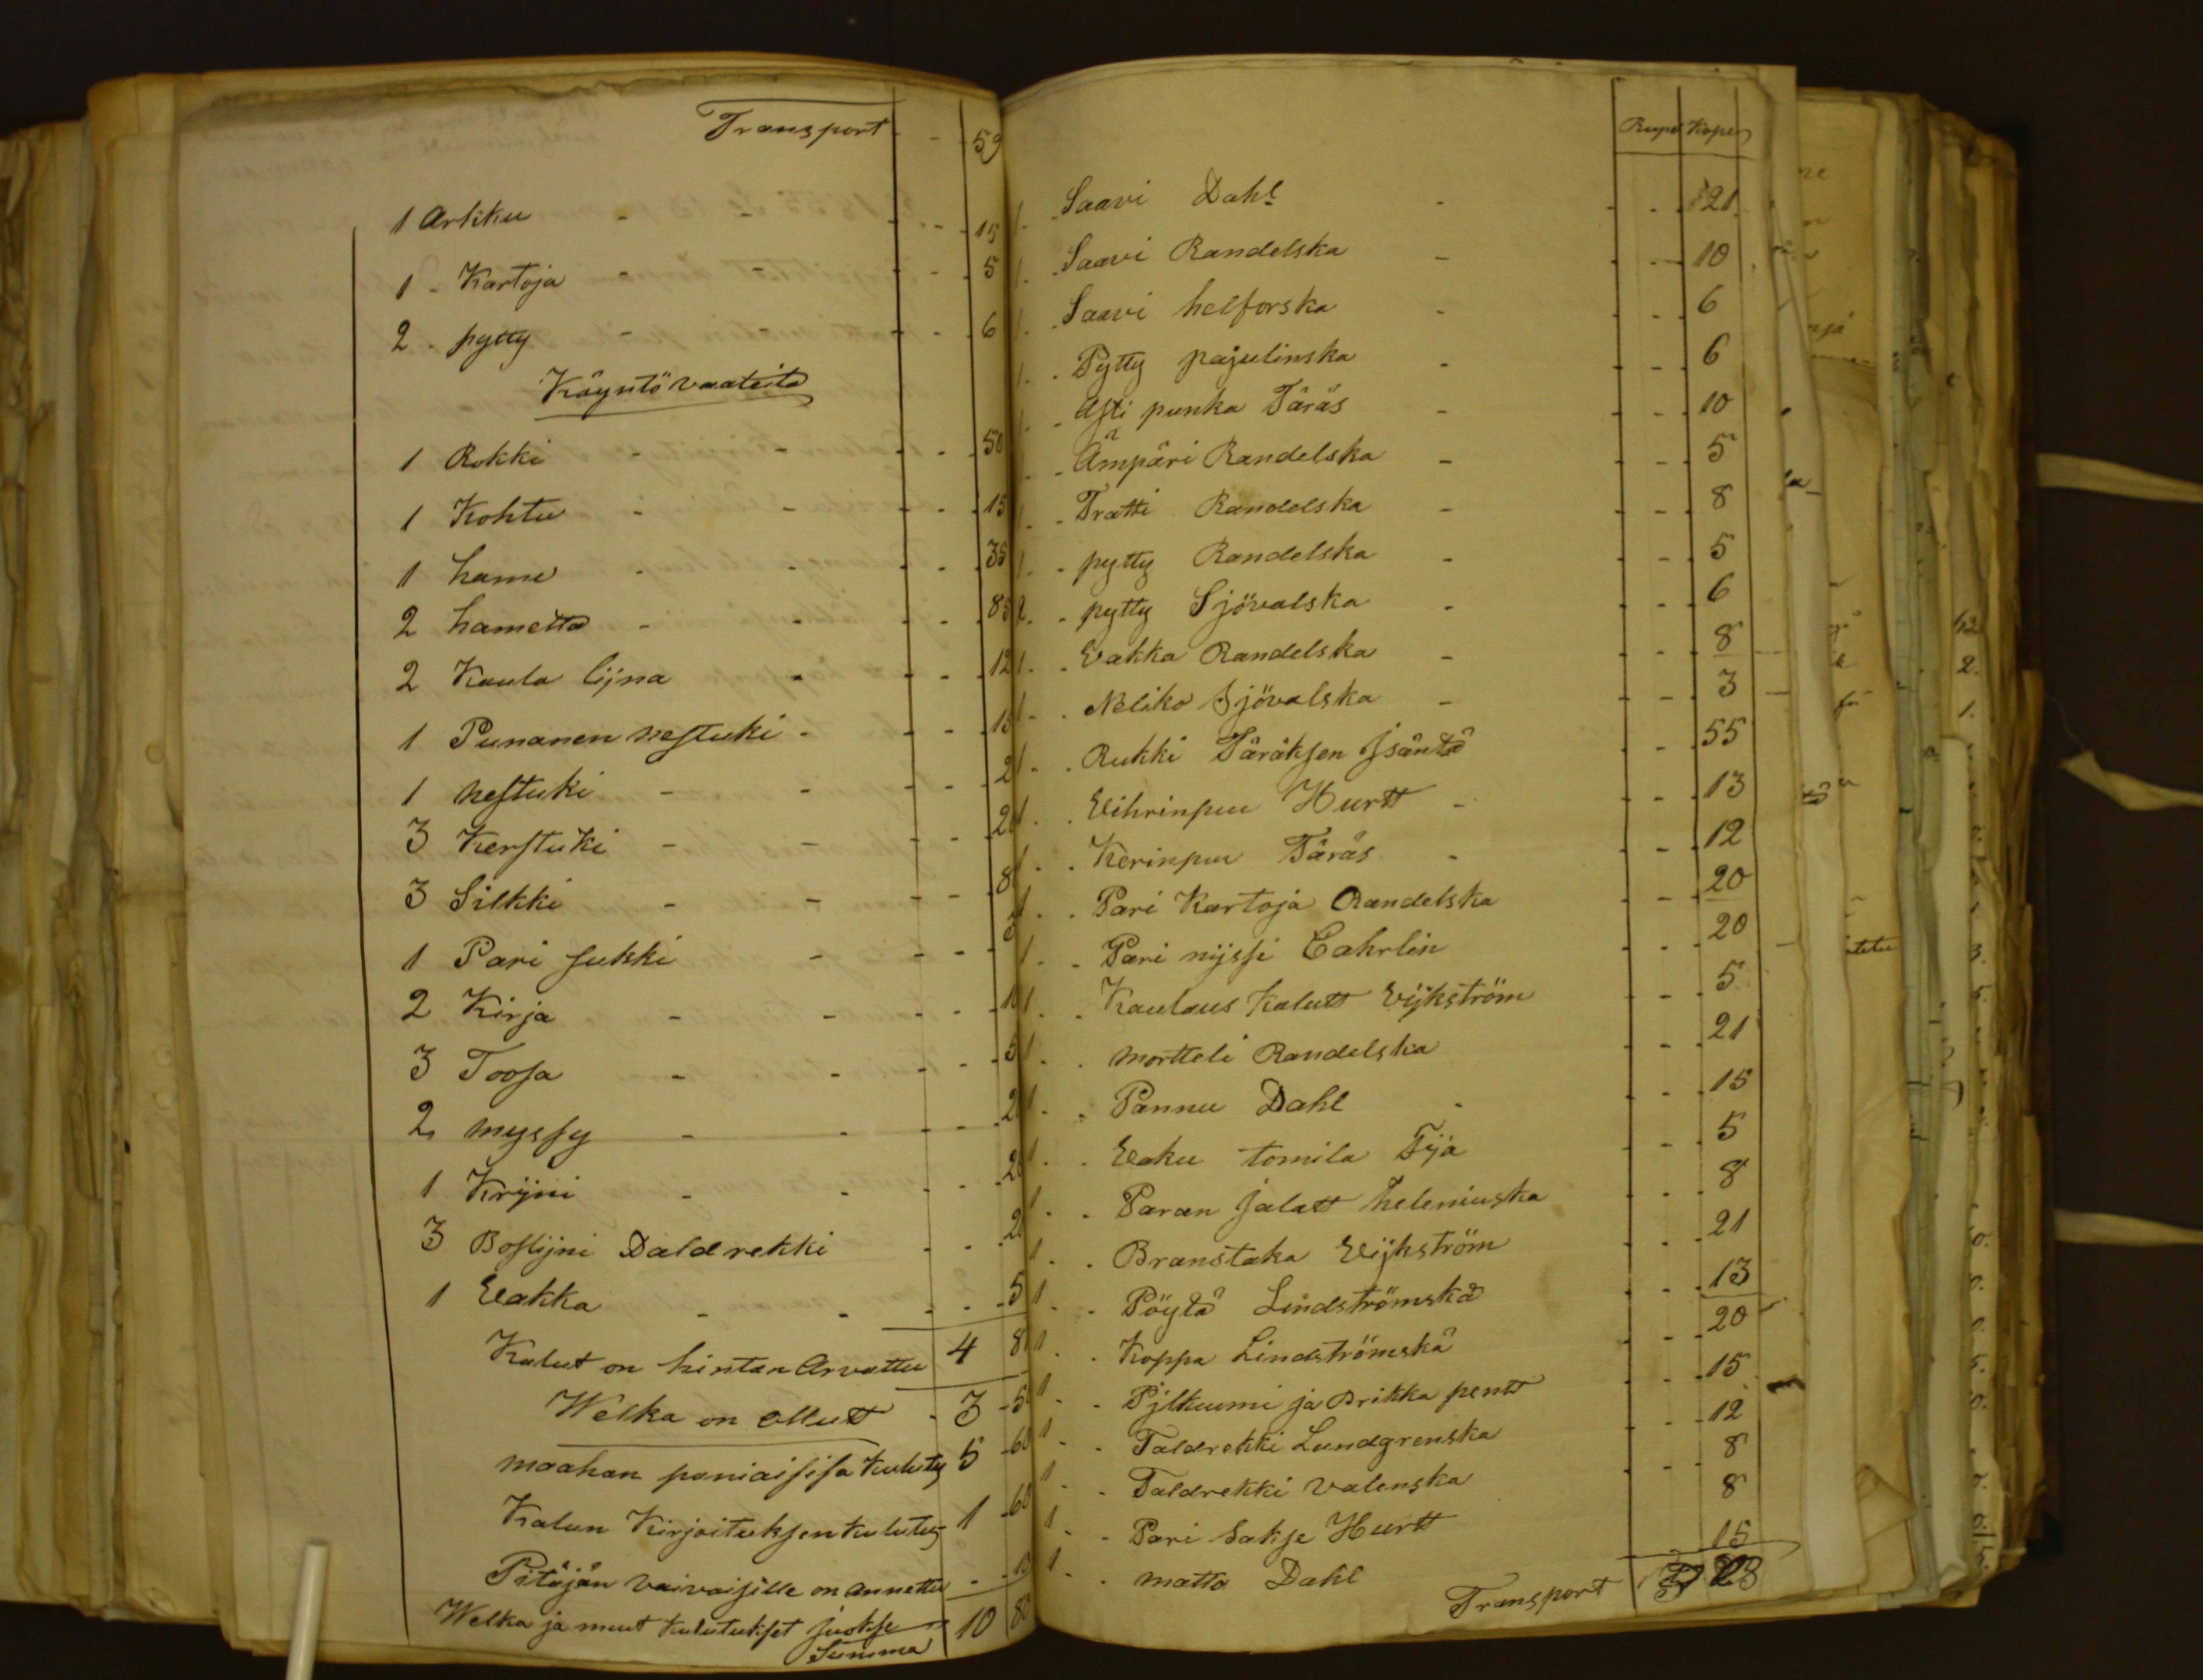 Transport - 59
1 Arkku - - - 15
1 - Kartoja - - - 5
2 - pytty - - - 6
Käyntövaateita
1 Rokki - - - 50
1 Kohtu - - - 15
1 hame - - - 35
2 hametta - - - 85
2 Kaula lijna - - - 12
1 Punanen nestuki - - - 15
1 nestuki - - -
3 Kerstuki - - -
3 Silkki - - - 8
1 Pari sukki - - -
2 Kirja - - - 10
3 Toosa - - - 5
2 myssy - - -
1 Krijni - - -
3 Boslijni Daldrekki - -
1 Vakka - - - 5
Kalut on hintan Arvattu 4 8
Welka on ollutt - 3 - 5
maahan paniaisissa kulutus 5 - 60
Kalun Kirjoituksen kulutus 1 - 60
Pitäjän vaivaisille on annettu - - 13
Welka ja muut kulutukset juokse 10 80
Summa
Rupl Kope
1 - Saavi Dahl - - - 21
1 - Saavi Randelska - - - 10
1 - Saavi helforska - - - 6
1 - Pytty pajulinska - - - 6
1 - Asti punka Täräs - - - 10
1 - Ämpäri Randelska - - - 5
1 - Tratti Randelska - - - 8
1 - pytty Randelska - - - 5
2 - pytty Sjövalska - - - 6
1 - Vakka Randelska - - - 8
1 - Neliko Sjövalska - - - 3
1 - Rukki Täräksen Isäntä - - 55
1 - Vihrinpuu Hurtt - - - 13
1 - Kerinpuu Täräs - - - 12
1 - Pari Kartoja Randelska - - 20
1 - Pari nijssi Cahrlin - - 20
1 - Kaulaus kalutt Vijkström - - 5
1 - mortteli Randelska - - 21
1 - Pannu Dahl - - - 15
1 - Vaku tomila Tija - - 5
1 - Paran jalatt heleniuska - - 8
1 - Branstaka Vijkström - - 21
1 - Pöytä Lindströmskä - - 13
1 - Koppa Lindströmskä - - 20
1 - Pijlkuumi ja Brikka pentt - - 15
1 - Taldrekki Lundgrenska - - 12
1 - Taldrekki valenska - - 8
1 - Pari Sakse Hurtt 8
1 - matto Dahl 15
Transport